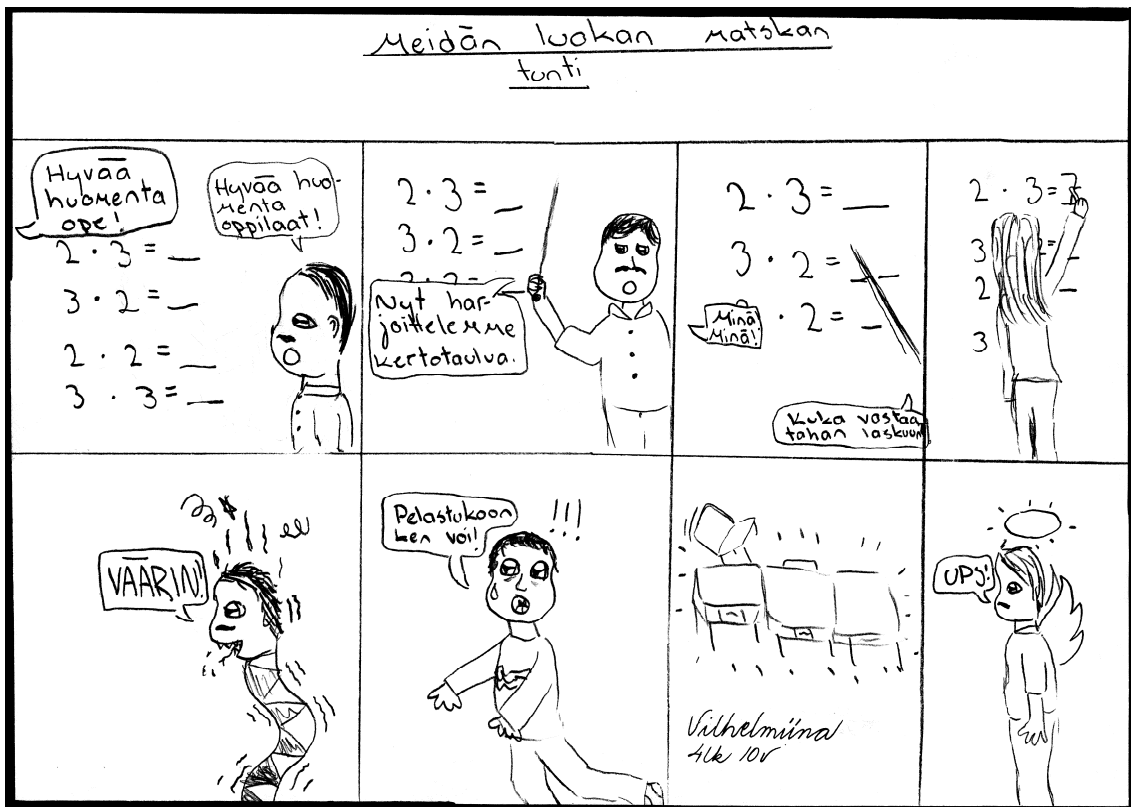 Meidän luokan matskan
tunti
Hyvää
huomenta
ope!
Hyvää huo-
menta
oppilaat!
2 · 3 = _
3 · 2 = _
2 · 2 = _
3 · 3 = _
2 · 3 = _
3 · 2 = _
Nyt har-
joittelemme
kertotaulua.
2 · 3 = _
3 · 2 = _
Minä
Minä!
· 2 = _
Kuka vastaa
tahan laskuun
2 · 3 = 7
3 = _
2 _
3
VÄÄRIN!
Pelastukoon
ken voi!
!!!
UPS!
Vilhelmiina
4lk 10v